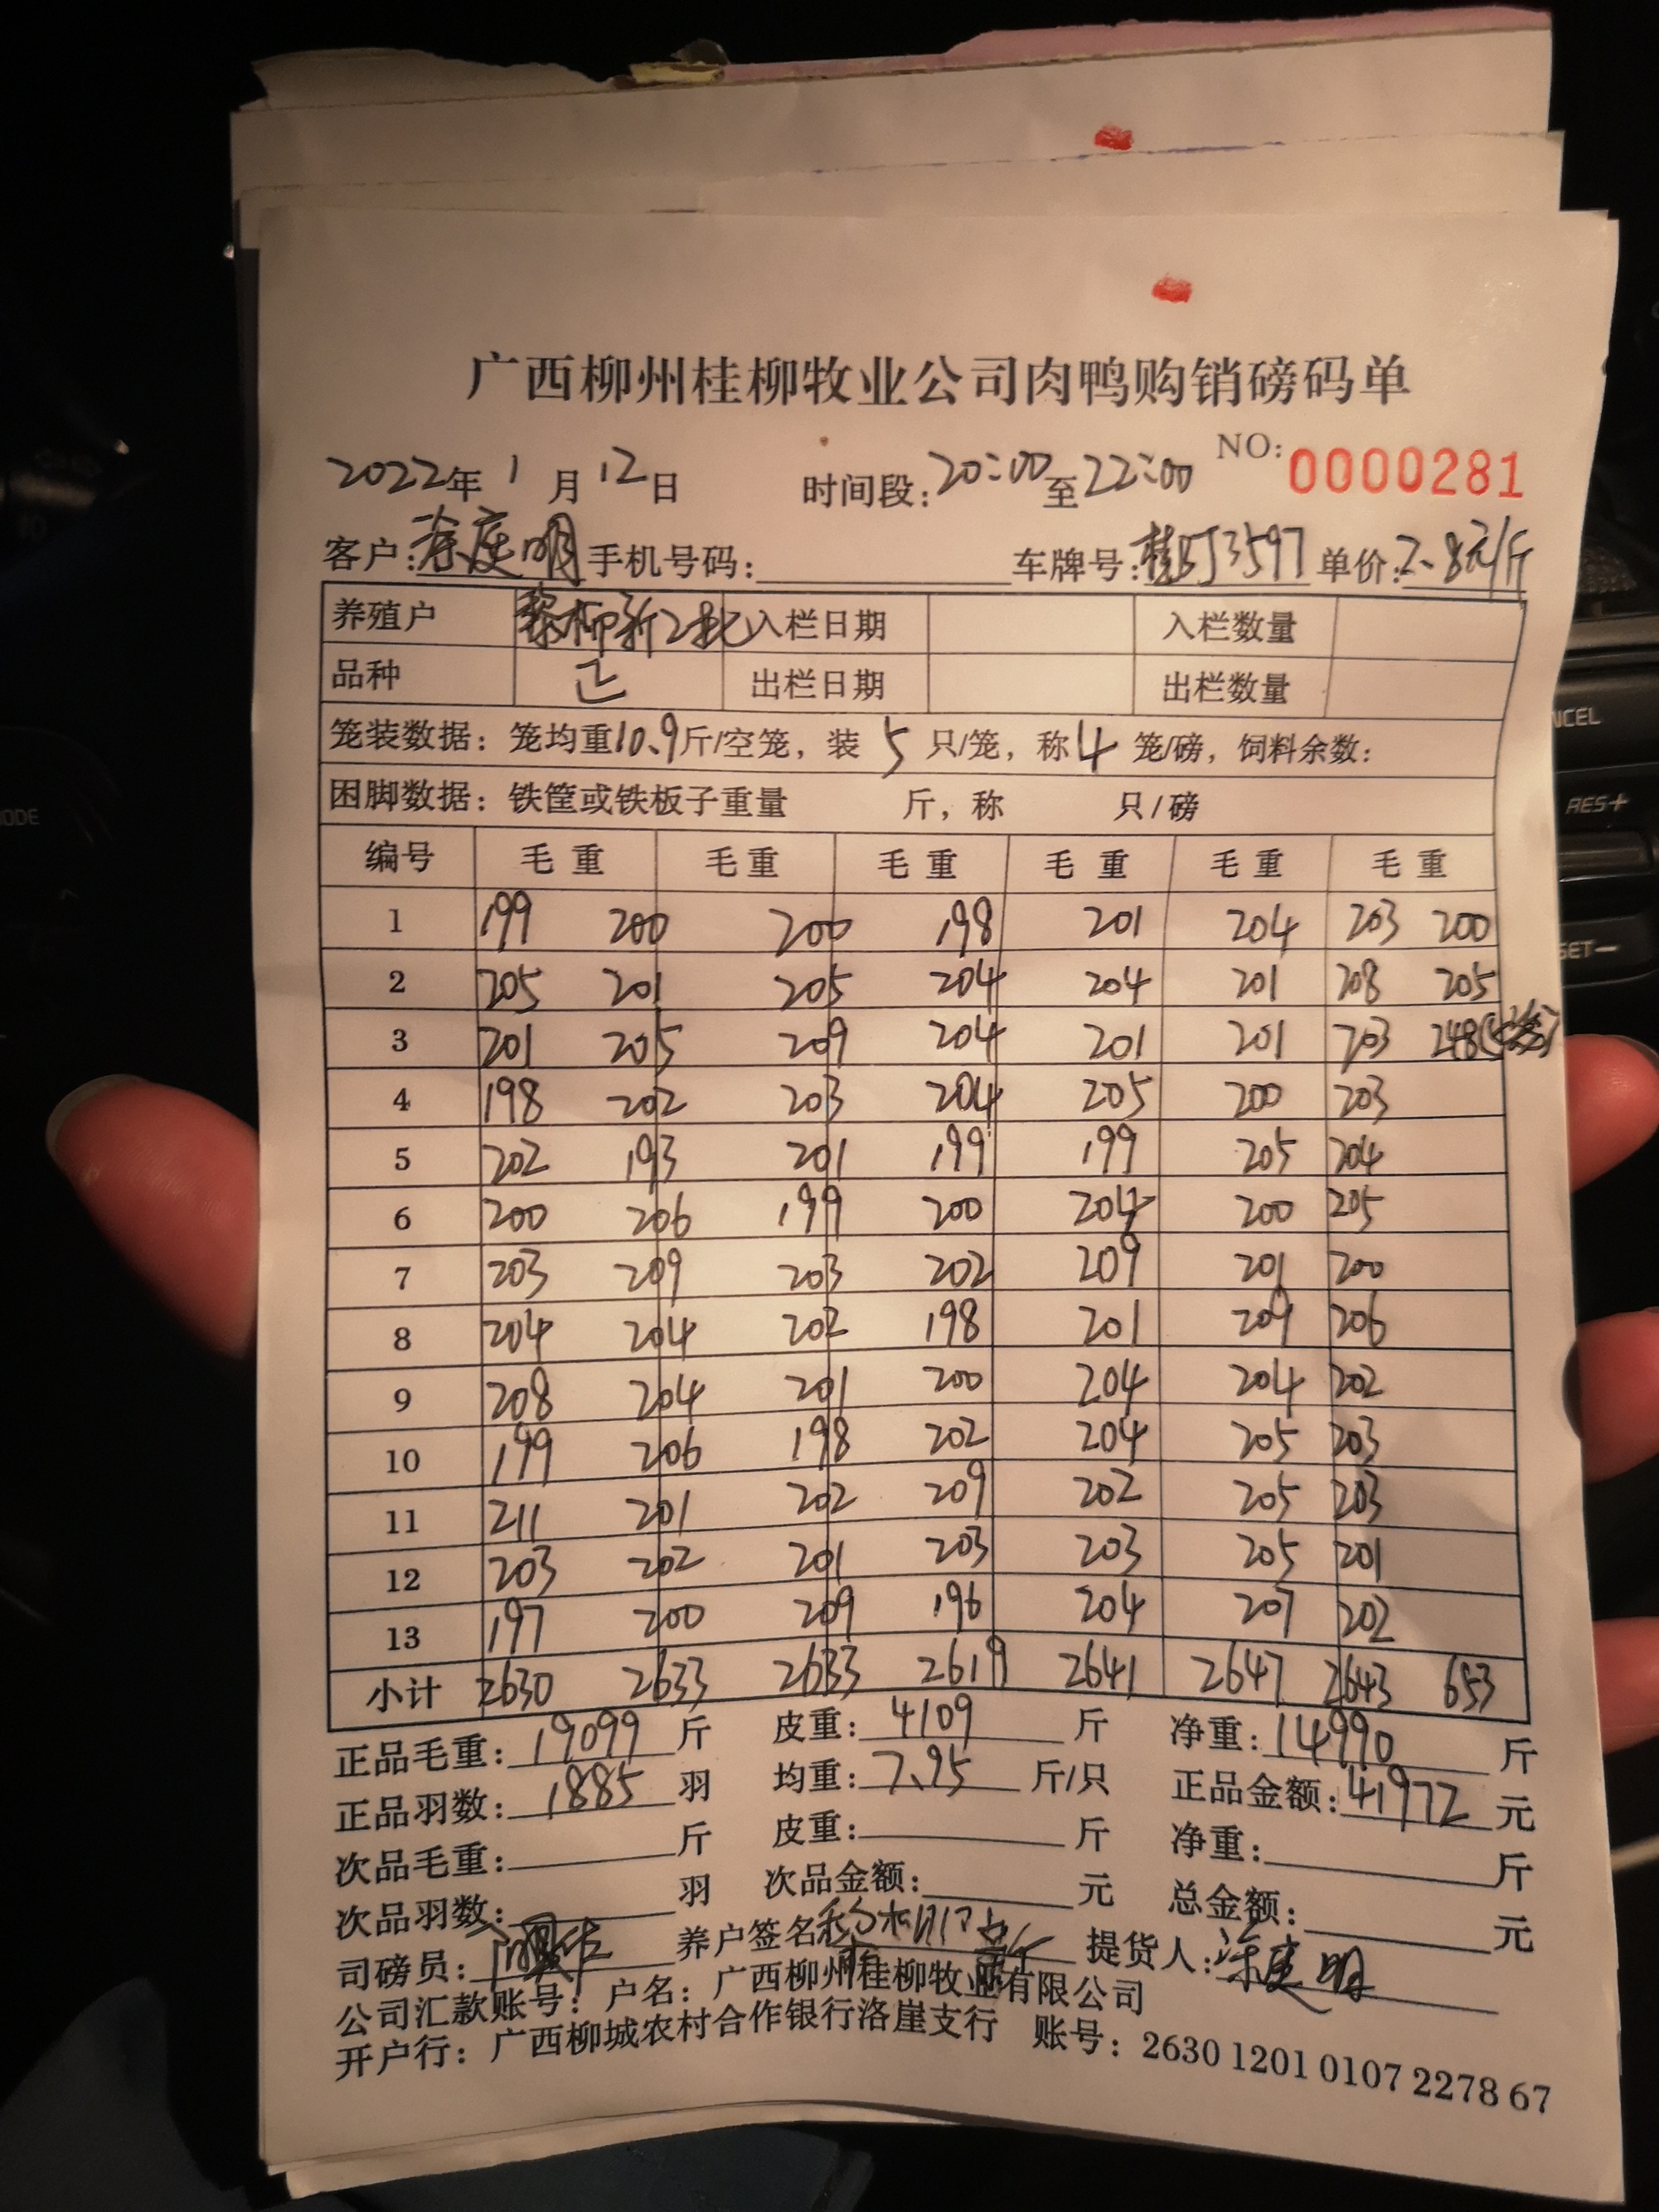 广西柳州桂柳牧业公司肉鸭购销磅码单
NO: 0000281
2022年 1 月 12日 时间段:20:00至22:00
客户: 庭明 手机号码: 车牌号: 桂 J3597 单价: 7.8元/斤
养殖户 黎柳新2批 入栏日期 入栏数量
品种 出栏日期 出栏数量
笼装数据: 笼均重10.9斤/空笼, 装 5 只/笼, 称4 笼/磅, 饲料余数:
困脚数据: 铁筐或铁板子重量 斤, 称 只/磅
编号 毛重 毛重 毛重 毛重 毛重 毛重
1 199 200 200 198 201 204 203 200
2 205 201 205 204 204 201 208 205
3 201 205 209 204 201 201 203 248
4 198 202 203 204 205 200 203
5 202 193 201 199 199 205 204
6 200 206 199 200 204 200 205
7 203 209 203 202 209 201 200
8 204 204 202 198 201 209 206
9 208 204 201 200 204 204 202
10 199 206 198 202 204 205 203
11 211 201 202 209 202 205 203
12 203 202 201 203 203 205 201
13 197 200 209 196 204 207 202
小计 2630 2633 2633 2619 2641 2647 2643 653
正品毛重: 19099 斤 皮重: 4109 斤 净重: 14990 斤
正品羽数: 1885 羽 均重: 7.95 斤/只 正品金额: 41972 元
次品毛重: 斤 皮重: 斤 净重: 斤
次品羽数: 羽 次品金额: 元 总金额: 元
司磅员: 养户签名 提货人: 庭明
公司汇款账号: 户名: 广西柳州桂柳牧业有限公司
开户行: 广西柳城农村合作银行洛崖支行 账号: 2630 1201 0107 2278 67